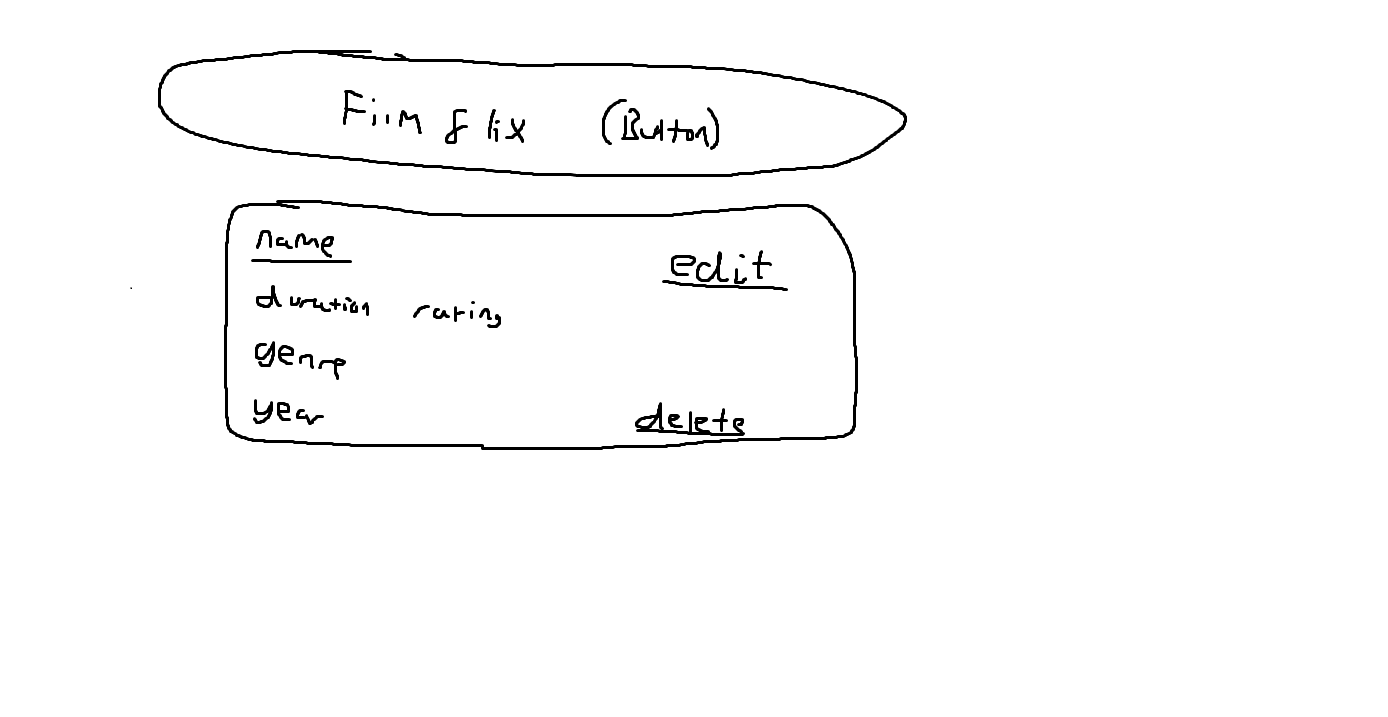 Film flix (Button)
name
edit
duration rating
genre
year
delete